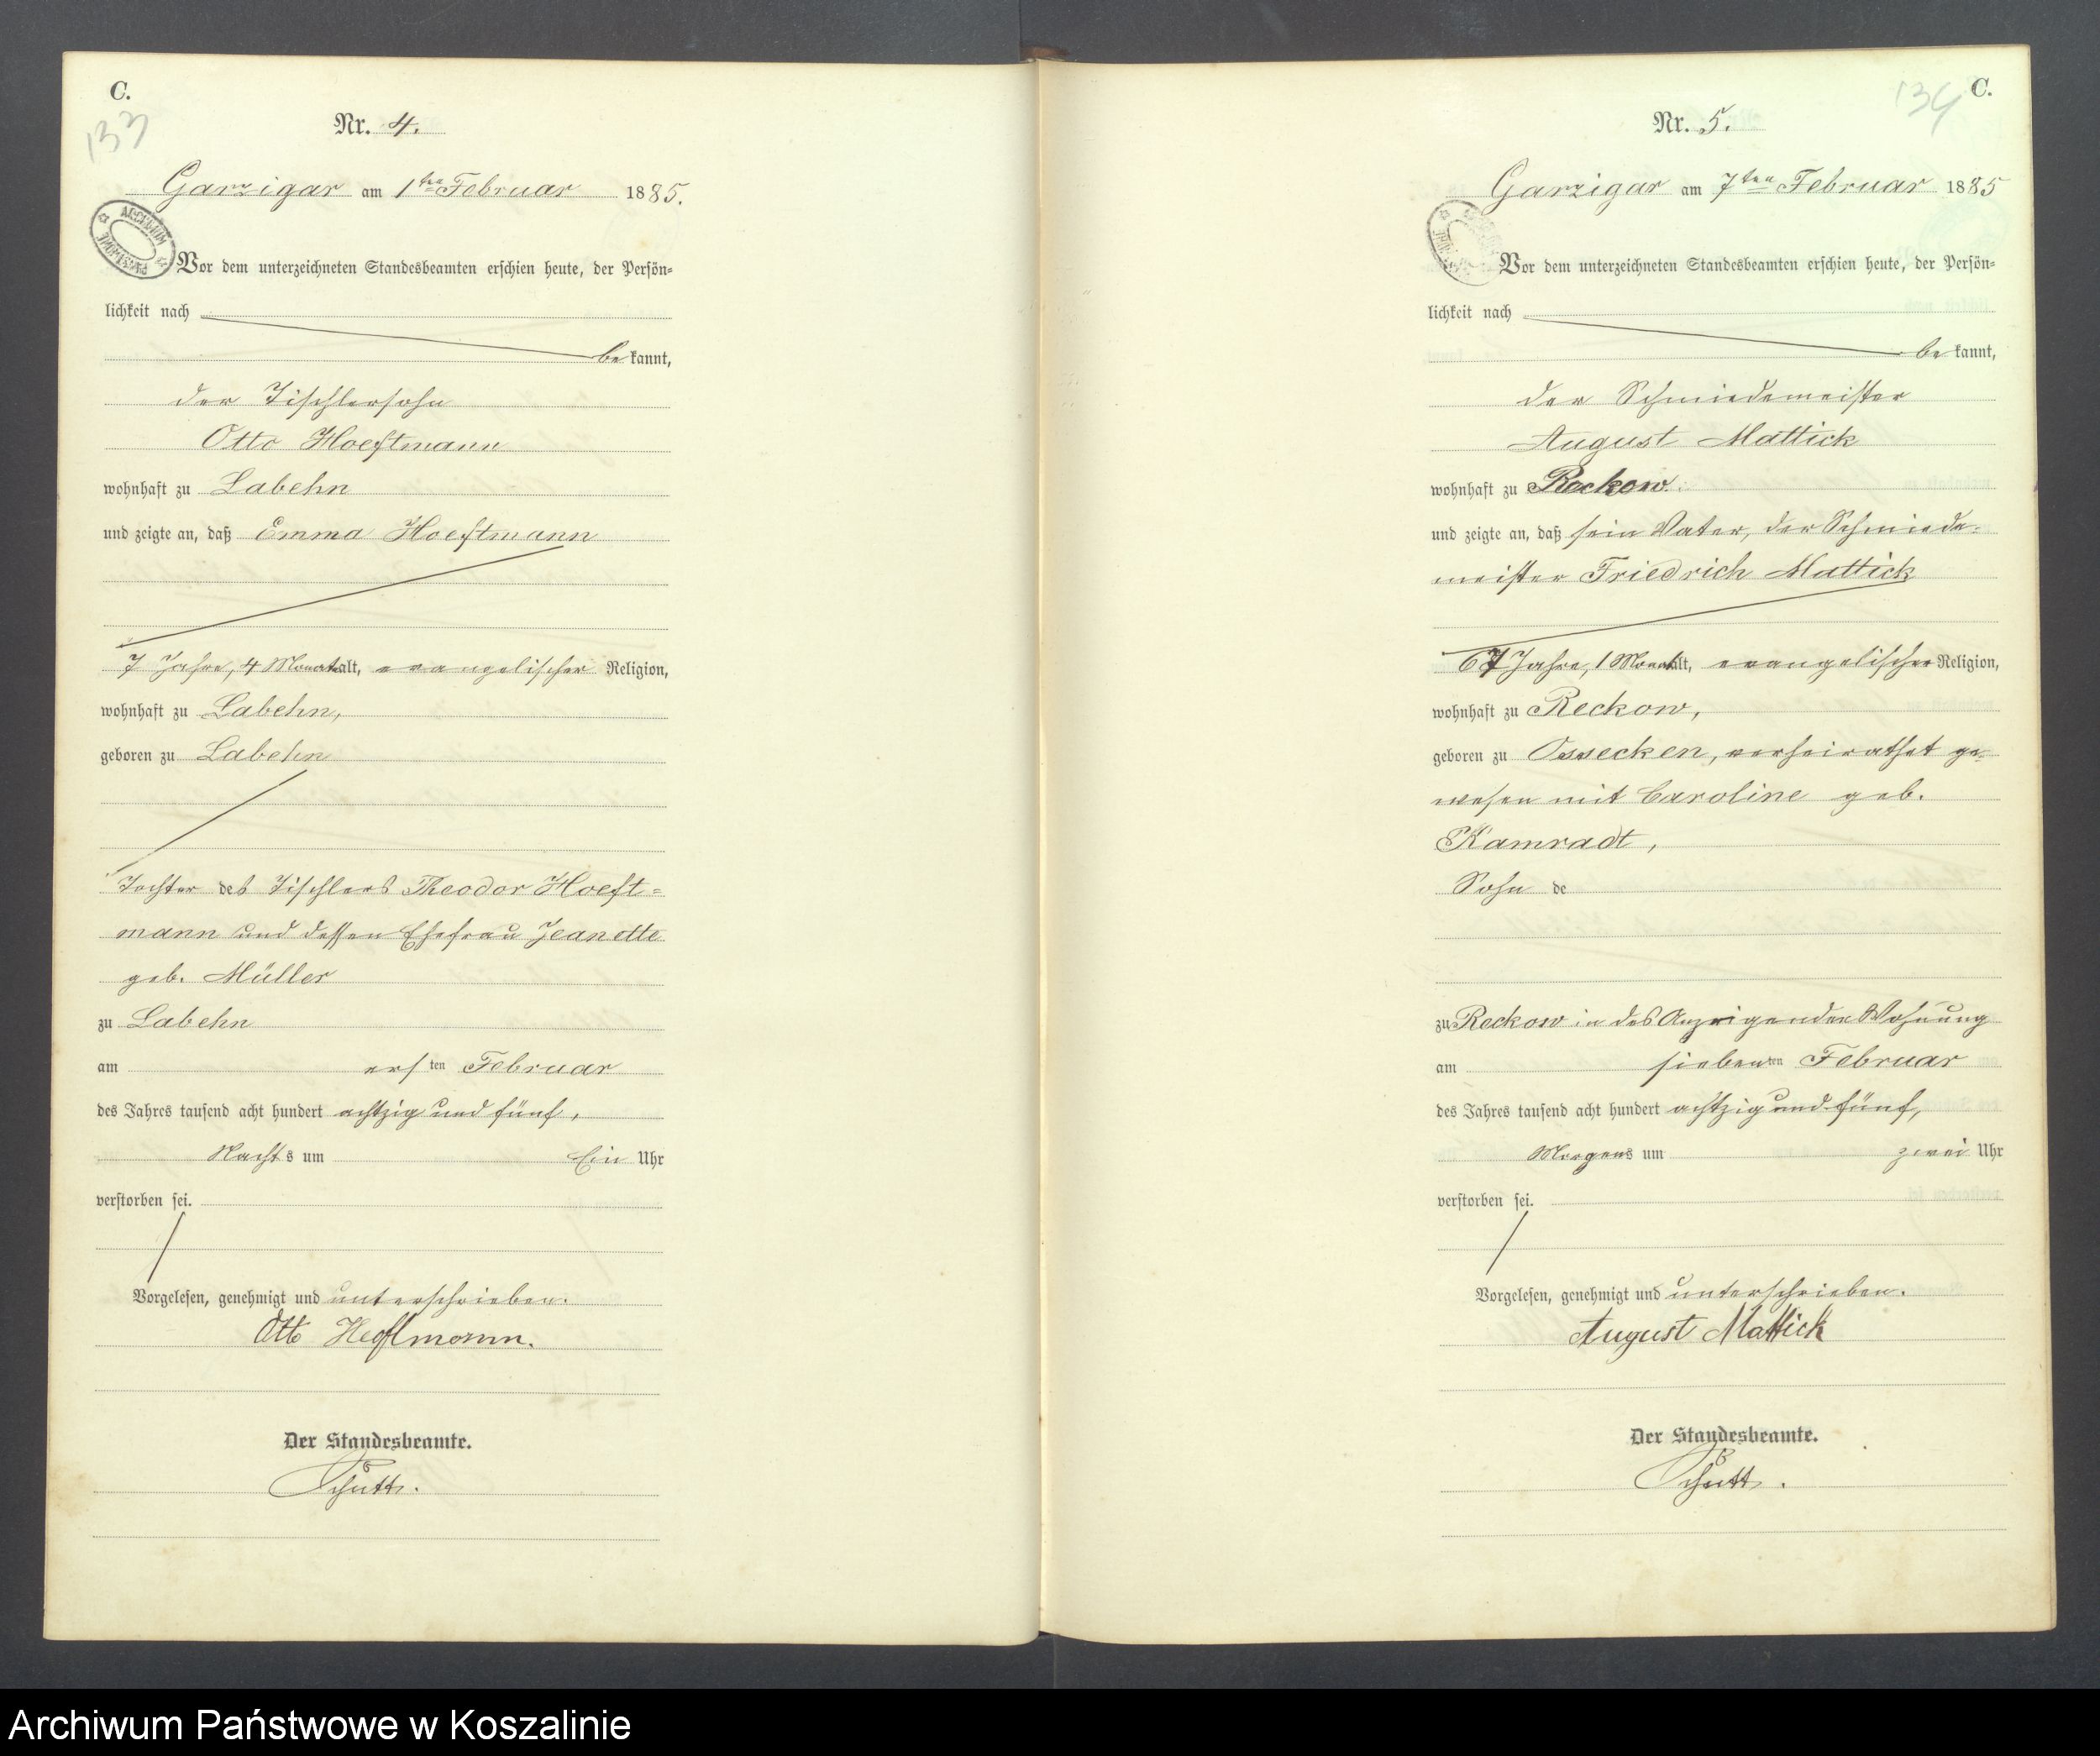 C.
133
Nr. 4.
Garzigar am 1ten Februar 1885.
ARCHIWUM PAŃSTWOWE
Vor dem unterzeichneten Standesbeamten erschien heute, der Persön=
lichkeit nach
be kannt,
der Tischlersohn
Otto Hoeftmann
wohnhaft zu Labehn
und zeigte an, daß Emma Hoeftmann
7 Jahre, 4 Monat alt, evangelischer Religion,
wohnhaft zu Labehn,
geboren zu Labehn
Tochter des Tischlers Theodor Hoeft=
mann und dessen Ehefrau Jeanette
geb. Müller
zu Labehn
am ersten Februar
des Jahres tausend acht hundert achtzig und fünf,
Nachts um Ein Uhr
verstorben sei.
Vorgelesen, genehmigt und unterschrieben.
Otto Heoftmann.
Der Standesbeamte.
Schütt.
134
C.
Nr. 5.
Garzigar am 7ten Februar 1885
Vor dem unterzeichneten Standesbeamten erschien heute, der Persön=
lichkeit nach
be kannt,
der Schmiedemeister
August Mattick
wohnhaft zu Reckow.
und zeigte an, daß sein Vater, der Schmiede=
meister Friedrich Mattick
67 Jahre, 1 Monat alt, evangelischer Religion,
wohnhaft zu Reckow,
geboren zu Ossecken, verheirathet ge=
wesen mit Caroline geb.
Kamradt,
Sohn de
zu Reckow in des Anzeigenden Wohnung
am siebenten Februar
des Jahres tausend acht hundert achtzig und fünf,
Morgens um zwei Uhr
verstorben sei.
Vorgelesen, genehmigt und unterschrieben.
August Mattick
Der Standesbeamte.
Schütt.
Archiwum Państwowe w Koszalinie